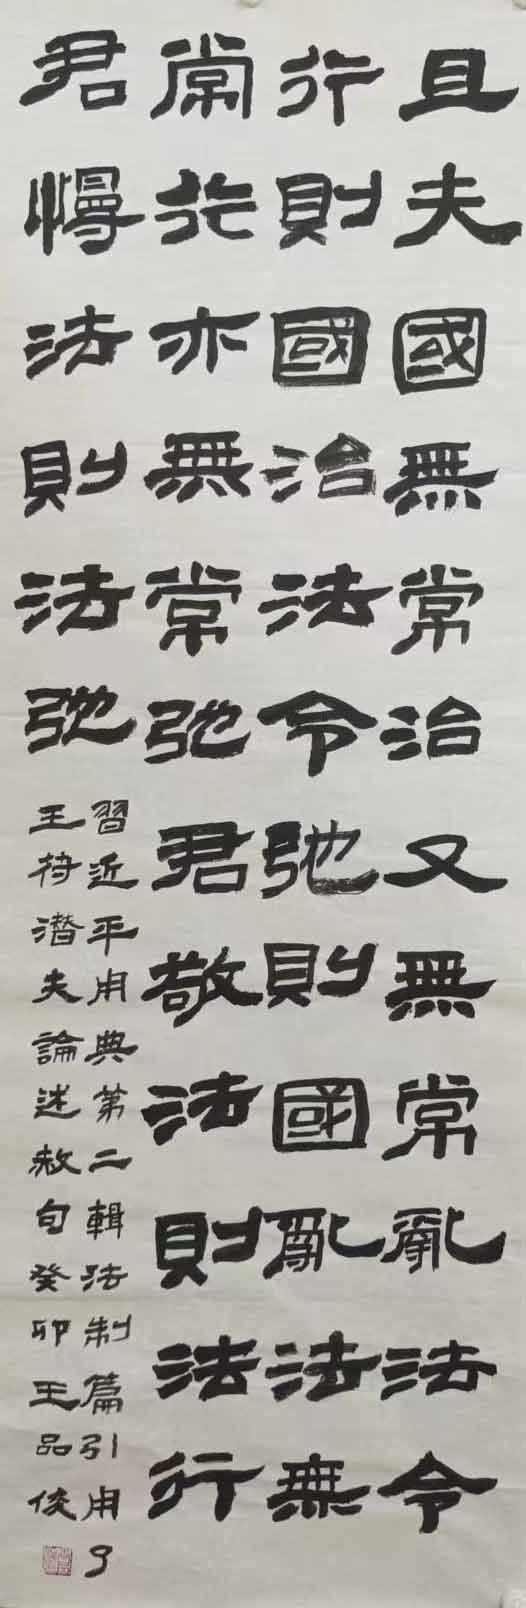 且夫國無常治又無常亂法令
行則國治法令弛則國亂法無
常行亦無常弛君敬法則法行
君慢法則法弛
習近平用典第二輯法制篇引用了
王符潛夫論述赦句癸卯王品俊